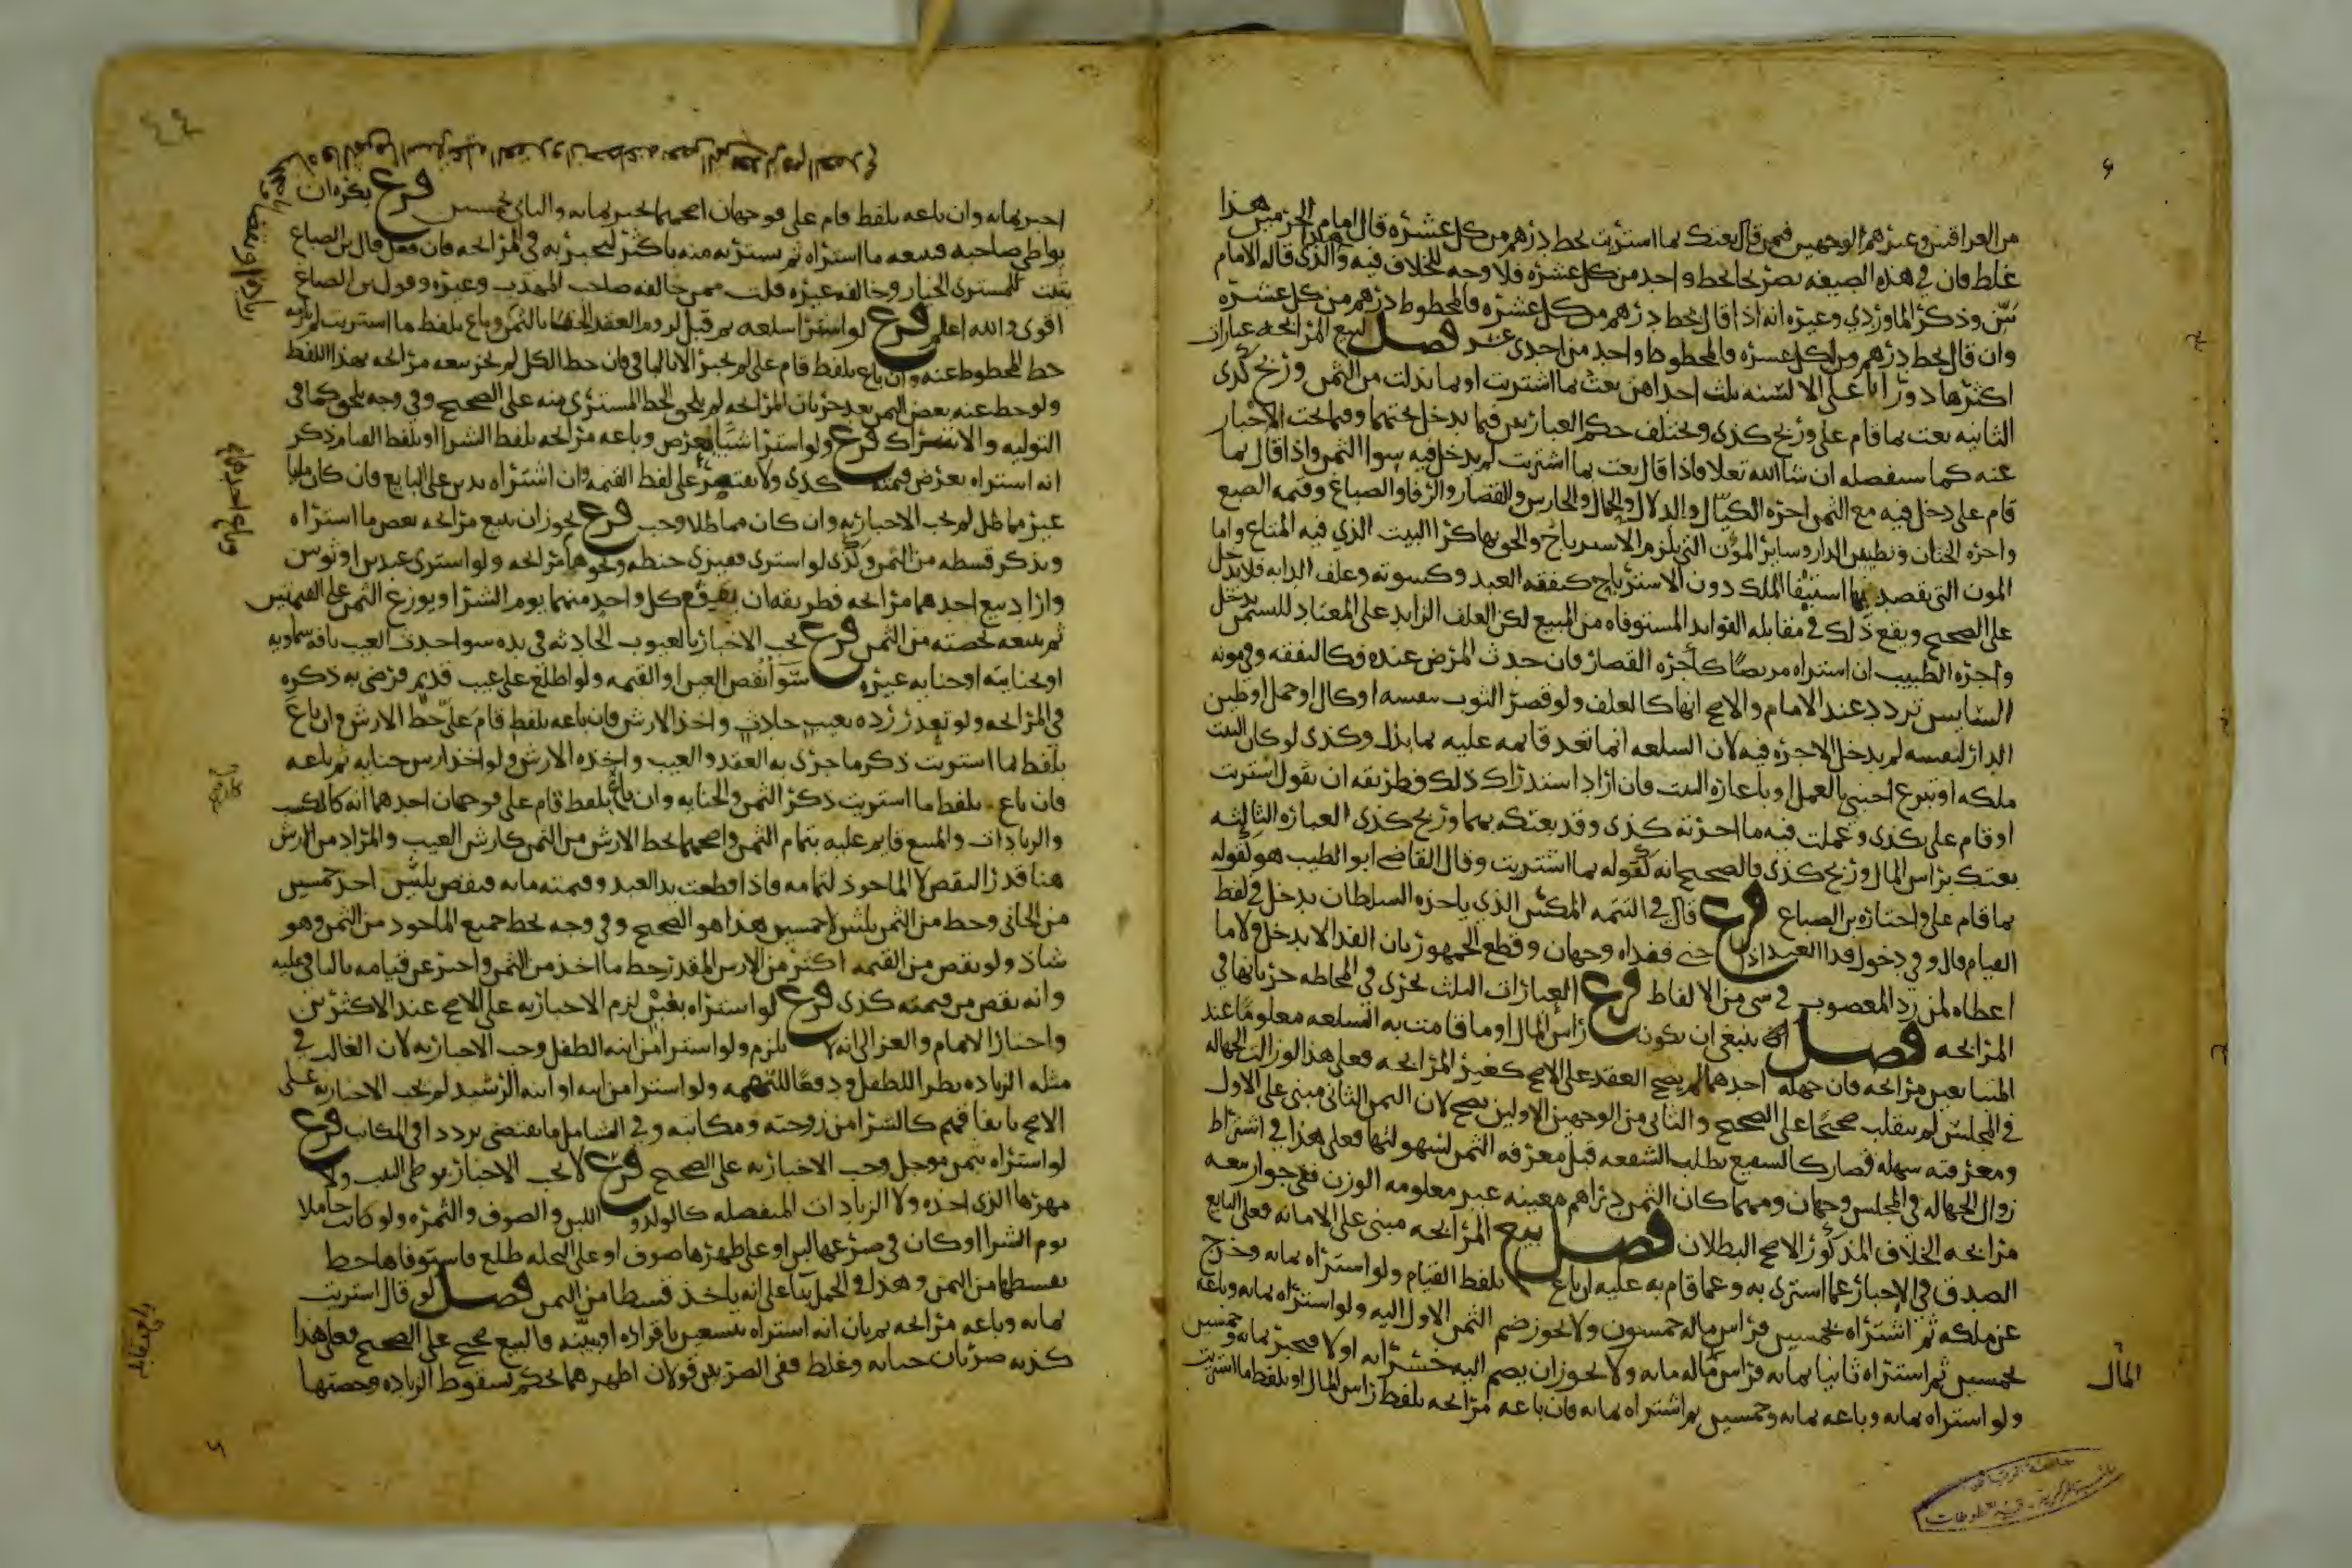 من العراقيين وغيرهم الوجهين فيمن قال بعتك بما اشتريت بحط درهم من كل عشرة قال امام الحرمين هذا
غلط فان في هذه الصيغه تصريحا بحط واحد من كل عشره فلا وجه للخلاف فيه والذي قاله الامام
بيّن وذكر الماوردي وغيره انه اذا قال بحط درهم من كل عشره فالمحطوط درهم من كل عشرة
وان قال بحط درهم لكل عشره فالمحطوط واحد من احدى عشر فصل لبيع المرابحه عبارات
اكثرها دورانا على الالسنه ثلث احداهن بعت بما اشتريت او بما بذلت من الثمن وربح كذى
الثانيه بعت بما قام علي وربح كذى ويختلف حكم العبارتين فيما يدخل تحتهما وفيما يجب الاخبار
عنه كما سنفصله ان شا الله تعلا فاذا قال بعت بما اشتريت لم يدخل فيه سوا الثمن واذا قال بما
قام علي دخل فيه مع الثمن اجره الكيال والدلال والحمال والحارس والقصار والرفا والصباغ وقيمه الصبغ
واجره الختان وتطيين الدار وساير المؤن التي يلزم الاسترباح والحق بها كرا البيت الذي فيه المتاع واما
المون التي يقصد بها استيفا الملك دون الاسترباح كنفقه العبد وكسوته وعلف الدابه فلا يدخل
على الصحيح ويقع ذلك في مقابله الفوايد المستوفاه من المبيع لكن العلف الزايد على المعتاد للتسمين يدخل
واجره الطبيب ان اشتراه مريضا كاجره القصار فان حدث المرض عنده فكالنفقه وفي مونه
السايس تردد عند الامام والاصح انها كالعلف ولو قصر الثوب بنفسه او كال او حمل او طين
الدار لنفسه لم يدخل الاجره فيه لان السلعه انما تعد قايمه عليه بما بذل وكذى لو كان البيت
ملكه او تبرع اجنبي بالعمل او باعارة البيت فان اراد استدراك ذلك فطريقه ان يقول اشتريت
او قام علي بكذى وعملت فيه ما اجرته كذى وقد بعتكه بهما وربح كذى العباره الثالثه
بعتك براس المال وربح كذى فالصحيح انه كقوله بما اشتريت وقال القاضي ابو الطيب هو كقوله
بما قام علي واختاره بن الصباغ فرع قال في التتمه المكس الذي ياخذه السلطان يدخل في لفظ
القيام قال وفي دخول فدا العبد اذا جنى ففداه وجهان وقطع الجمهور بان الفدا لا يدخل ولا ما
اعطاه لمن رد المغصوب في شي من الالفاظ فرع العبارات الثلث تجري في المحاطه جريانها في
المرابحه فصل ينبغي ان يكون راس المال او ما قامت به السلعه معلوما عند
المتبايعين مرابحه فان جهله احدهما لم يصح العقد على الاصح كغير المرابحه فعلى هذا لو زالت الجهاله
في المجلس لم ينقلب صحيحا على الصحيح والثاني من الوجهين الاولين يصح لان الثمن الثاني مبني على الاول
ومعرفته سهله فصار كالشفيع يطلب الشفعه قبل معرفه الثمن لسهولتها فعلى هذا في اشتراط
زوال الجهاله في المجلس وجهان ومهما كان الثمن دراهم معينه غير معلومه الوزن ففي جواز بيعه
مرابحه الخلاف المذكور الاصح البطلان فصل بيع المرابحه مبني على الامانه فعلى البايع
الصدق في الاخبار عما اشترى به وعما قام به عليه ان باع بلفظ القيام ولو اشتراه بمايه وخرج
عن ملكه ثم اشتراه بخمسين فراس ماله خمسون ولا يجوز ضم الثمن الاول اليه ولو اشتراه بمايه وباعه
بخمسين ثم اشتراه ثانيا بمايه فراس ماله مايه ولا يجوز ان يضم اليه خسرانه اولا فيخبر بمايه وخمسين
ولو اشتراه بمايه وباعه بمايه وخمسين ثم اشتراه بمايه فان باعه مرابحه بلفظ راس المال او بلفظ ما اشتريت
المال
٤٤
اخبر بمايه وان باعه بلفظ قام علي فوجهان اصحهما يخبر بمايه والثاني بخمسين فرع يكره ان
يواطي صاحبه فيبيعه ما اشتراه ثم يشتريه منه باكثر ليخبر به في المرابحه فان فعل قال بن الصباغ
يثبت للمشتري الخيار وخالفه غيره قلت ممن خالفه صاحب المهذب وغيره وقول بن الصباغ
اقوى والله اعلم فرع لو اشترا سلعه ثم قبل لزوم العقد الحقا بالثمن وباع بلفظ ما اشتريت لم
حط المحطوط عنه وان باع بلفظ قام علي لم يخبر الا بالباقي فان حط الكل لم يجز بيعه مرابحه بهذا اللفظ
ولو حط عنه بعض الثمن بعد جريان المرابحه لم يلحق الحط المشتري منه على الصحيح وفي وجه يلحق كما في
التوليه والاشتراك فرع ولو اشترا شيا بعرض وباعه مرابحه بلفظ الشرا او بلفظ القيام ذكر
انه اشتراه بعرض قيمته كذى ولا يقتصر على لفظ القيمه وان اشتراه بدين على البايع فان كان مليا
غير مماطل لم يجب الاخبار به وان كان مماطلا وجب فرع يجوز ان يبيع مرابحه بعض ما اشتراه
ويذكر قسطه من الثمن وكذى لو اشترى قفيزي حنطه ونحوها مرابحه ولو اشترى عبدين او ثوبين
واراد بيع احدهما مرابحه فطريقه ان يقوم كل واحد منهما يوم الشرا ويوزع الثمن على القيمتين
ثم يبيعه بحصته من الثمن فرع يجب الاخبار بالعيوب الحادثه في يده سوا حدث العيب بافه سماويه
او بجنايته او جنايه غيره سوا نقص العين او القيمه ولو اطلع على عيب قديم فرضي به ذكره
في المرابحه ولو تعذر رده بعيب حادث واخذ الارش فان باعه بلفظ قام علي حط الارش وان باع
بلفظ ما اشتريت ذكر ما جرى به العقد والعيب واخذه الارش ولو اخذ ارش جنايه ثم باعه
فان باع بلفظ ما اشتريت ذكر الثمن والجنايه وان باع بلفظ قام علي فوجهان احدهما انه كالكسب
والزيادات والمبيع قايم عليه بتمام الثمن واصحهما يحط الارش من الثمن كارش العيب والمراد من الارش
هنا قدر النقص لا الماخوذ بتمامه فاذا قطعت يد العبد وقيمته مايه فنقص ثلثين اخذ خمسين
من الجاني وحط من الثمن ثلثين لا خمسين هذا هو الصحيح وفي وجه يحط جميع الماخوذ من الثمن وهو
شاذ ولو نقص من القيمه اكثر من الارش المقدر حط ما اخذ من الثمن واخبر عن قيامه بالباقي عليه
وانه نقص من قيمته كذى فرع لو اشتراه بغبن لزم الاخبار به على الاصح عند الاكثرين
واختار الامام والغزالي انه لا يلزم ولو اشترا من ابنه الطفل وجب الاخبار به لان الغالب في
مثله الزياده نظرا للطفل ودفعا للتهمه ولو اشترا من ابيه او ابنه الرشيد لم يجب الاخبار به على
الاصح باتفاقهم كالشرا من زوجته ومكاتبه وفي الشامل ما يقتضي ترددا في المكاتب فرع
لو اشتراه بثمن موجل وجب الاخبار به على الصحيح فرع لا يجب الاخبار بوطي الثيب ولا
مهرها الذي اخذه ولا الزيادات المنفصله كالولد و اللبن والصوف والثمره ولو كانت حاملا
يوم الشرا او كان في ضرعها لبن او على ظهرها صوف او على النخله طلع فاستوفاها حط
بقسطها من الثمن وهذا في الحمل بنا على انه ياخذ قسطا من الثمن فصل لو قال اشتريت
بمايه وباعه مرابحه ثم بان انه اشتراه بتسعين باقراره او بينه فالبيع صحيح على الصحيح فعلى هذا
كذبه ضربان خيانه وغلط ففي الضربين قولان اظهرهما يحكم بسقوط الزياده وحصتها